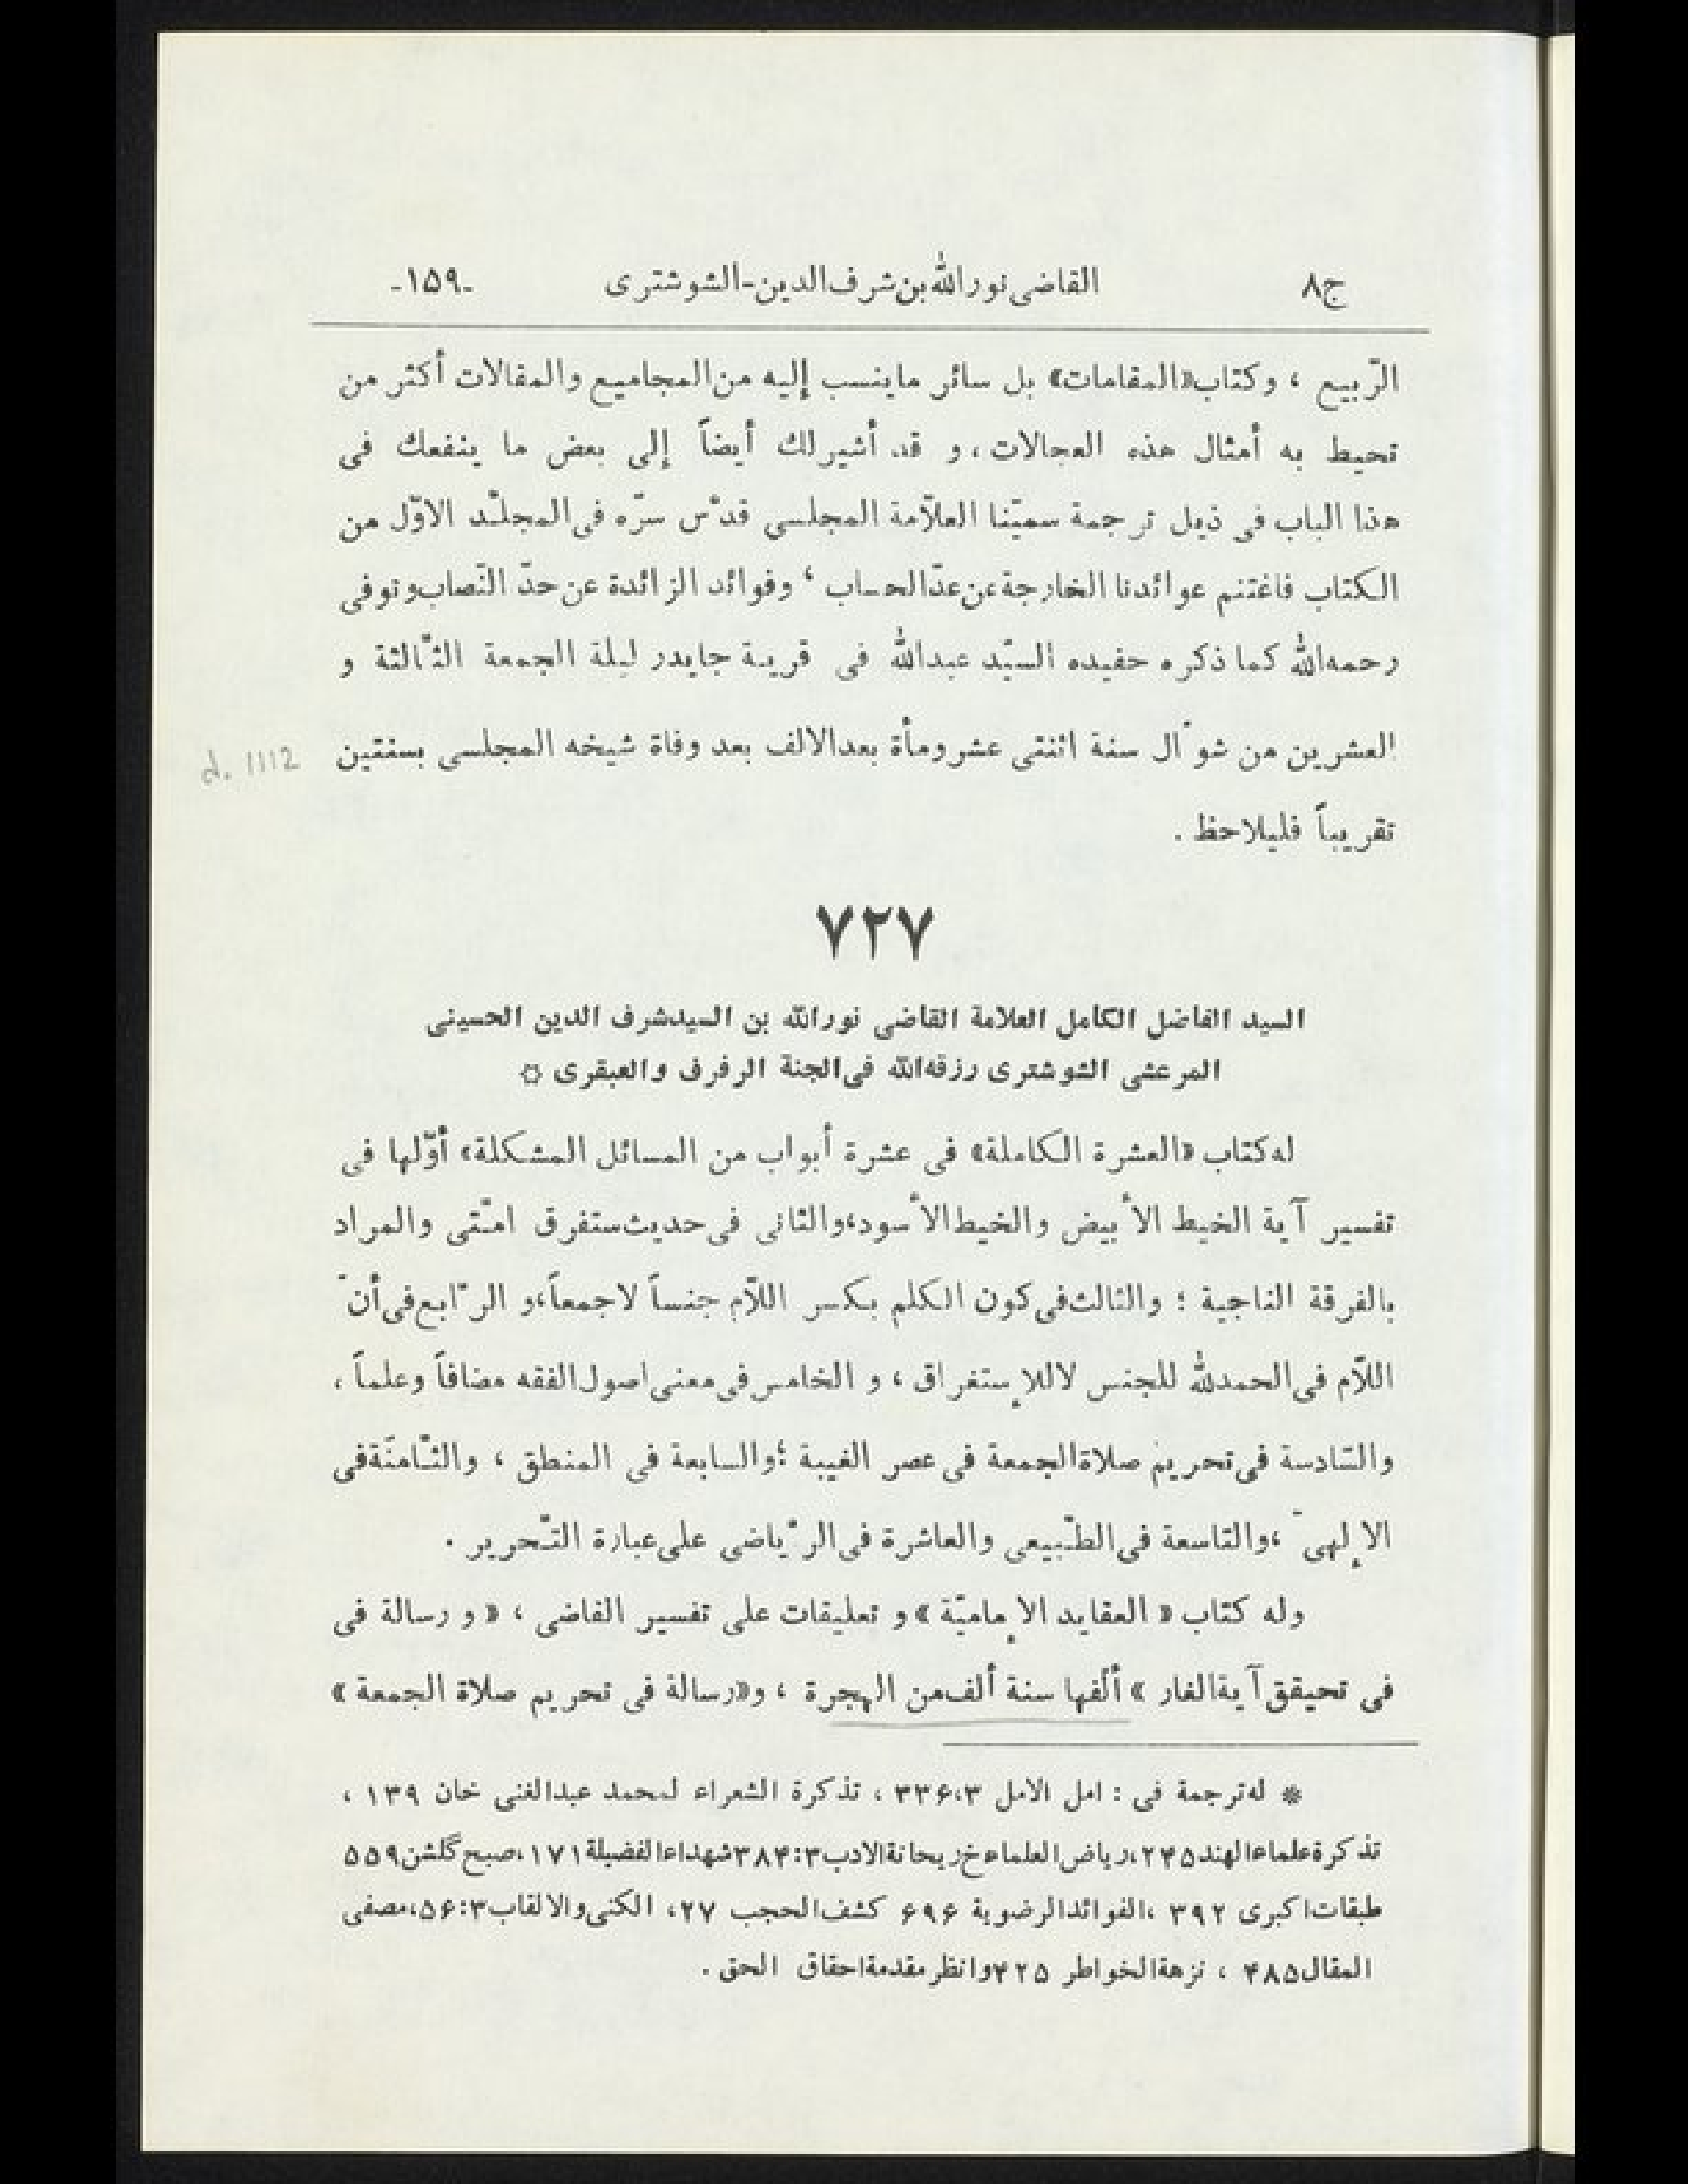 ج٨ القاضى نورالله بن شرف الدين-الشوشترى -١٥٩-
الرّبيع ، وكتاب«المقامات» بل سائر ماينسب إليه من المجاميع والمقالات أكثر من
تحيط به أمثال هذه العجالات ، و قد أشير لك أيضاً إلى بعض ما ينفعك فى
هذا الباب فى ذيل ترجمة سميّنا العلاّمة المجلسى قدّس سرّه فى المجلّد الاوّل من
الكتاب فاغتنم عوائدنا الخارجة عن عدّ الحساب ، وفوائد الزائدة عن حدّ النّصاب وتوفى
رحمه الله كما ذكره حفيده السيّد عبدالله فى قرية جايدر ليلة الجمعة الثّالثة و
العشرين من شوّال سنة اثنتى عشر ومأة بعدالالف بعد وفاة شيخه المجلسى بسنتين
d. 1112
تقريباً فليلاحظ .
٧٢٧
السيد الفاضل الكامل العلامة القاضى نورالله بن السيدشرف الدين الحسينى
المرعشى الشوشترى رزقه الله فى الجنة الرفرف والعبقرى ✩
له كتاب «العشرة الكاملة» فى عشرة أبواب من المسائل المشكلة» أوّلها فى
تفسير آية الخيط الأبيض والخيط الأسود،والثانى فى حديث ستفرق امّتى والمراد
بالفرقة الناجية ؛ والثالث فى كون الكلم بكسر اللاّم جنساً لاجمعاً،و الرّابع فى أنّ
اللاّم فى الحمدلله للجنس لاللإستغراق ، و الخامس فى معنى اصول الفقه مضافاً وعلماً ،
والسّادسة فى تحريم صلاة الجمعة فى عصر الغيبة ؛والسابعة فى المنطق ، والثّامنة فى
الإلهىّ ،والتاسعة فى الطّبيعى والعاشرة فى الرّياضى على عبارة التّحرير .
وله كتاب « العقايد الإماميّة » و تعليقات على تفسير القاضى ، « و رسالة فى
فى تحيقق آية الغار » ألّفها سنة ألف من الهجرة ، و«رسالة فى تحريم صلاة الجمعة »
* له ترجمة فى : امل الامل ٣٣۶،٣ ، تذكرة الشعراء لمحمد عبدالغنى خان ١٣٩ ،
تذكرة علماء الهند ٢۴۵،رياض العلماء خ ريحانة الادب ٣٨۴:٣ شهداء الفضيلة ١٧١،صبح گلشن ۵۵٩
طبقات اكبرى ٣٩٢ ،الفوائد الرضوية ۶٩۶ كشف الحجب ٢٧، الكنى والالقاب ۵۶:٣،مصفى
المقال ۴٨۵ ، نزهة الخواطر ۴٢۵ وانظر مقدمة احقاق الحق .